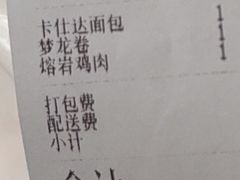 卡仕达面包 1
梦龙卷 1
熔岩鸡肉 1
打包费
配送费
小计